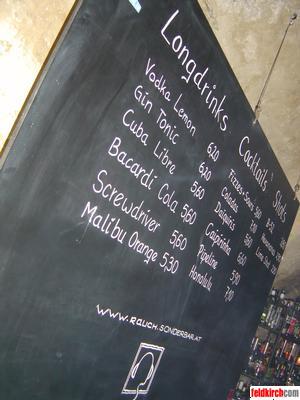 Longdrinks
Vodka Lemon 620
Gin Tonic 620
Cuba Libre 560
Bacardi Cola 560
Screwdriver 560
Malibu Orange 5,30
Cocktails
Coladas
Daiquiris
Caipirinha 660
Pipeline 5,90
Honolulu 7,10
Shots
www.rauch.sonderbar.at
feldkirch.com